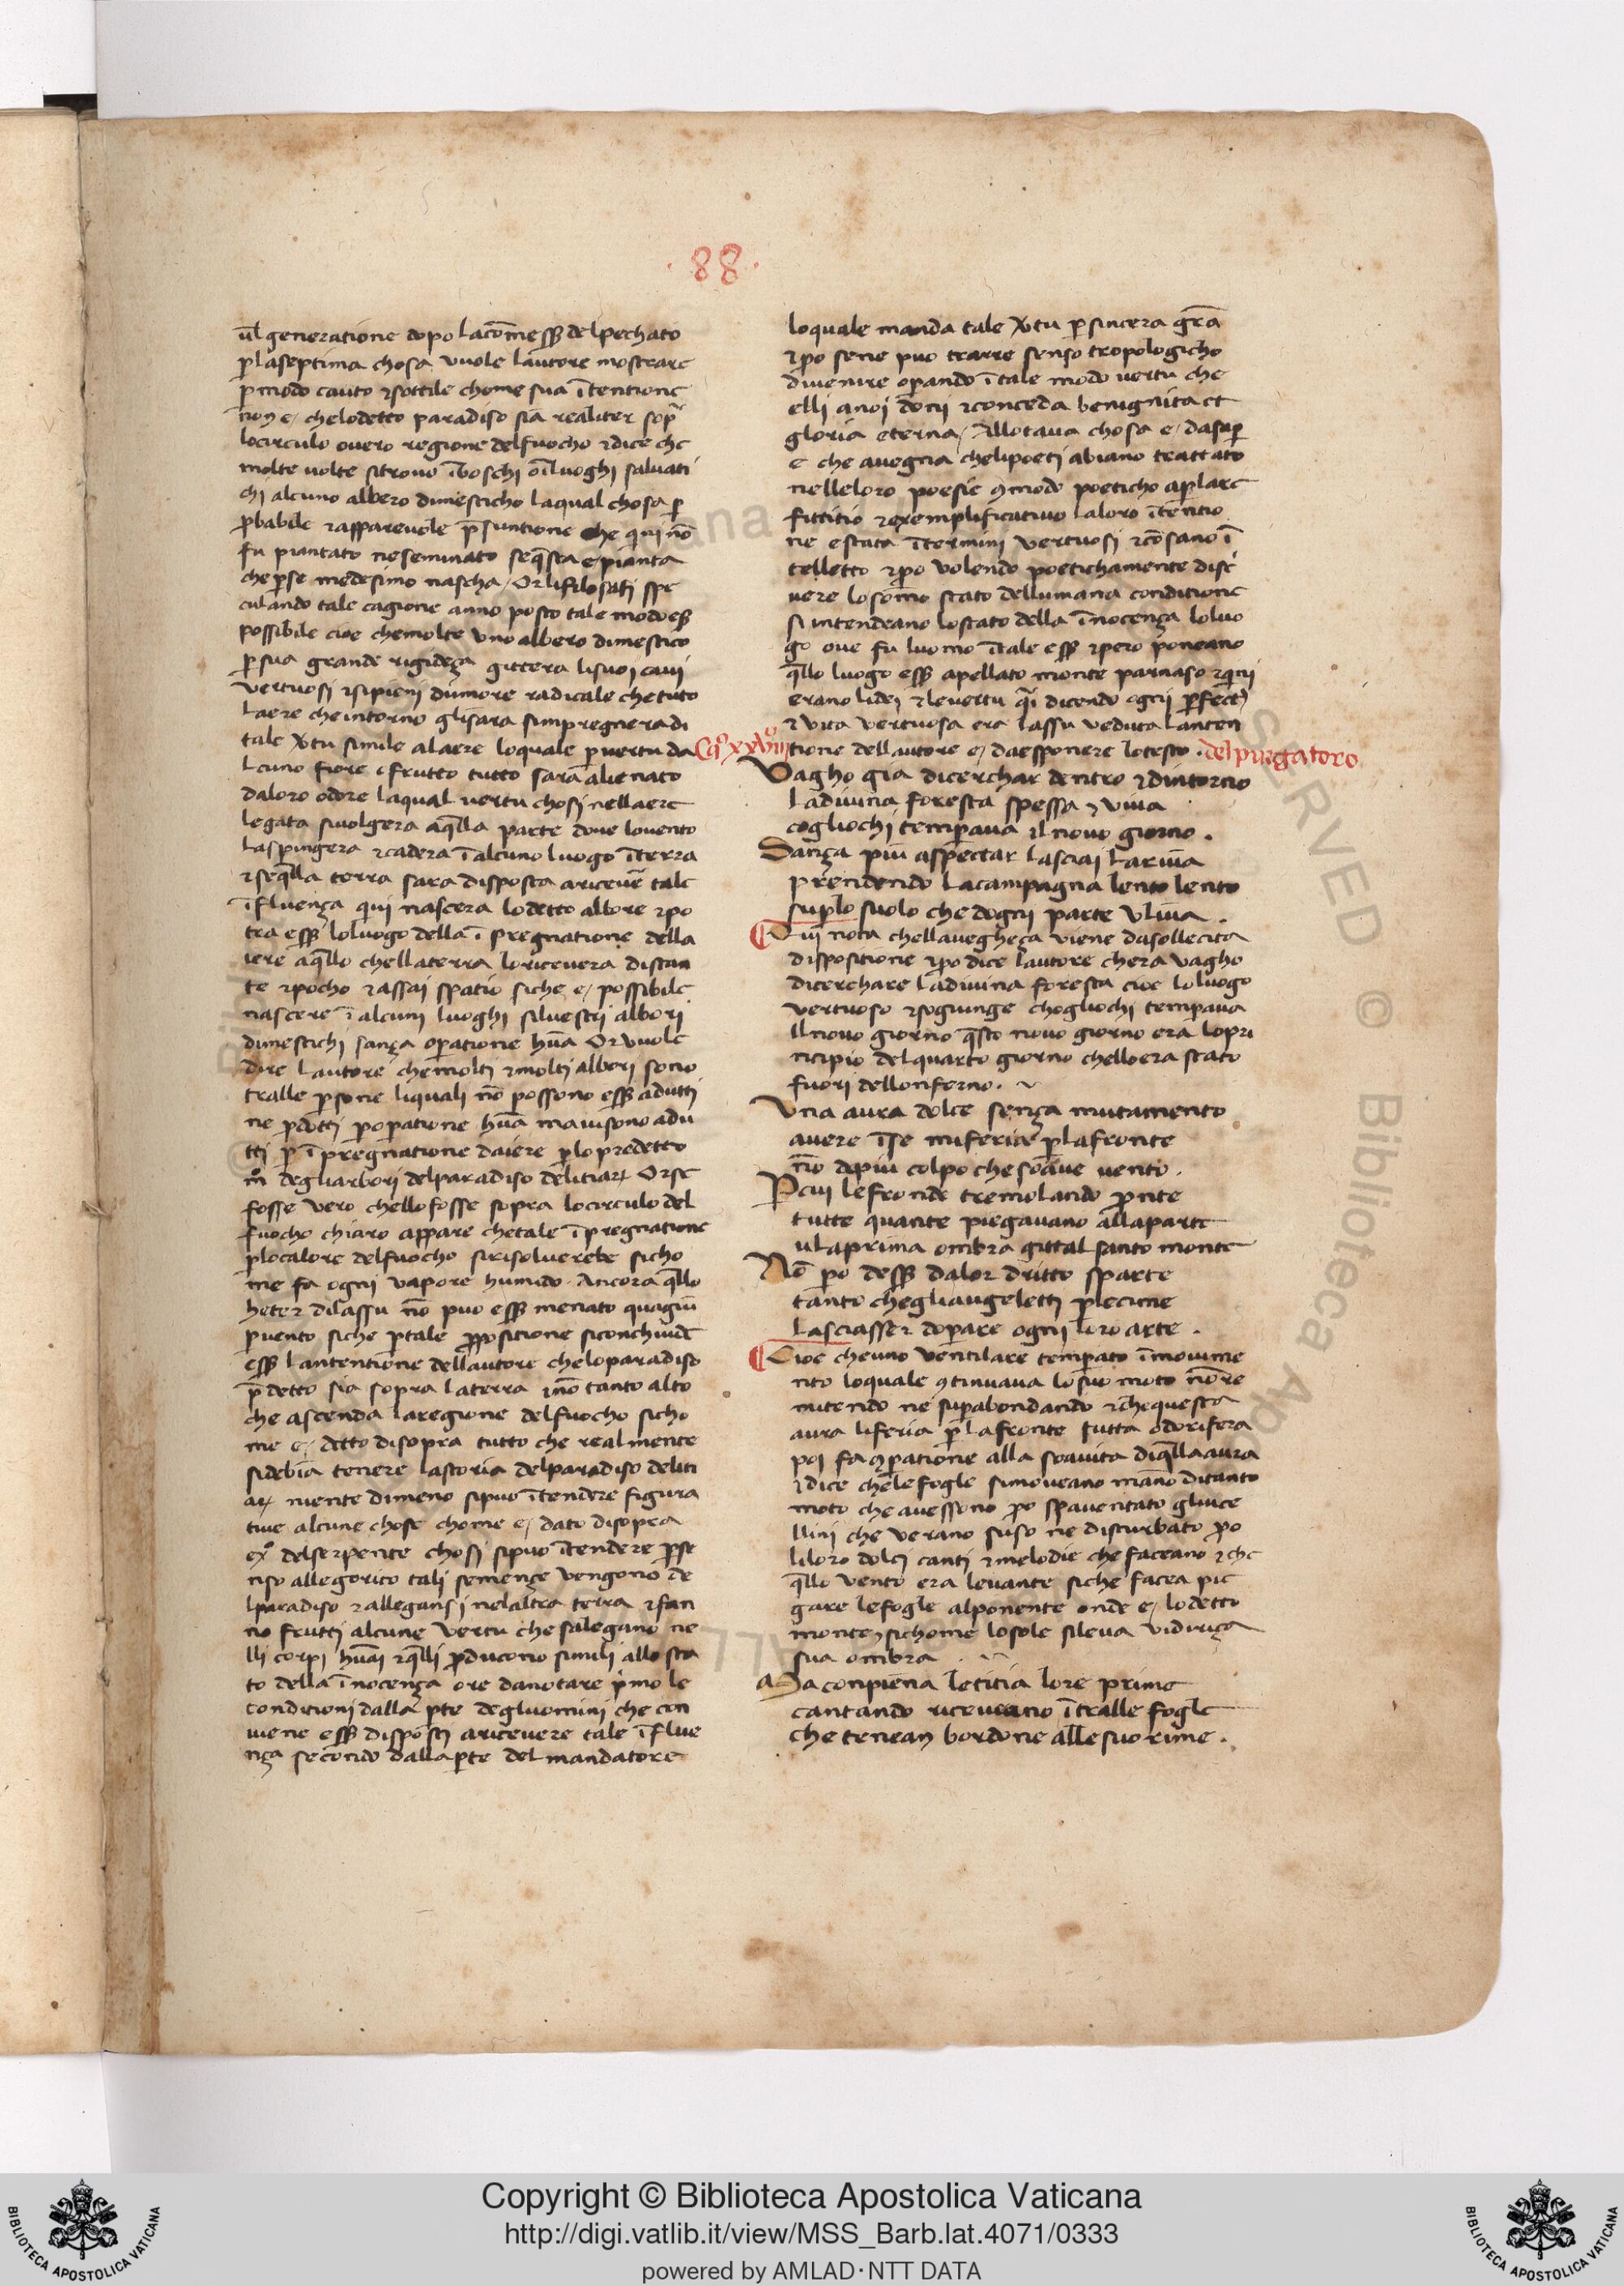 ·88·
ūl generatione dopo lacom̄ess̄ delpechato
ꝑ laseptima chosa vuole lautore mostrare
ꝑ modo cauto ⁊sottile chome sua ītentione
non e, chelodetto paradiso sia realiter sopᵃ
locirculo overo regione delfuocho ⁊dice che
molte volte sitrovo īboschi oī luoghi salvati
chi alcuno albero dimesticho laqual chosa ꝑ
ꝓbabile ⁊apparevole p̄suntione che qui nō
fu piantato neseminato seq̄sta e, pianta
cheꝑse medesimo nascha, Or lifilosafi spe
culando tale cagione anno posto tale modo ess̄
possibile cioe chemolte vno albero dimestico
ꝑ sua grande rigideça gittera lisuoi cavi
vertuosi ⁊sipieni dumore radicale chetuto
laere cheintorno glisara simpregnera di
tale v̓tu simile alaere loquale ꝑ vertu da
lcuno fiore e frutto tutto sara alienato
daloro odore laqual vertu chosi nellaere
legata sivolgera aq̄lla parte dove lovento
laspingera ⁊cadera ī alcuno luogo īterra
⁊seq̄lla terra sara disposta aricever̄ tale
īfluença qui nascera lodetto albore ⁊po
tra ess̄ loluogo della ī pregnatione della
iere aq̄llo chellaterra loricevera distan
te ⁊pocho ⁊assai spatio siche e, possibile
nascere ī alcuni luoghi silvestri albori
dimestichi sança oꝑatione hūa Or vuole
dire lautore chemolti ⁊molti albori sono
tralle ꝑsone liquali nō possono ess̄ adutti
ne ꝓdotti ꝑ oꝑatione hūa mavisono adu
tti ꝑ ī pregnatione daiere ꝑlo predetto
mᵒ degliarbori delparadiso delitiaꝝ Orse
fosse vero chellofosse sopra locirculo del
fuocho chiaro appare chetale īpregnatione
ꝑlocalore delfuocho sirisolverebe sicho
me fa ogni vapore humido. Ancora q̄llo
heter dilassu nō puo ess̄ menato quagiu
ꝑ vento siche ꝑ tale ꝓpositione siconchiude
ess̄ lantentione dellautore cheloparadiso
p̄detto sia sopra laterra ⁊nō tanto alto
che ascenda laregione delfuocho sicho
me e, detto disopra tutto che realmente
sidebia tenere lastoria delparadiso deliti
aꝝ niente dimeno sipuo ītendere figura
tive alcune chose chome e, dato disopra
exᵒ delserpente chosi sipuo ītendere ꝑse
nso allegorico tali semençe vengono de
lparadiso ⁊allegansi nelaltra terra ⁊fan
no frutti alcune vertu che salegano ne
lli corpi hūai ⁊q̄lli ꝓducono simili allo sta
to della īnocença ore danotare p̓mo le
conditioni dalla ꝑte degluomini che con
viene ess̄ disposti aricevere tale īflue
nça secondo dalla ꝑte del mandatore
loquale manda tale v̓tu ꝑ sincera grā
⁊ꝑo sene puo trarre senso tropologicho
divenire oꝑando ītale modo vertu che
elli anoi doni ⁊conceda benignita et
gloria eterna, Allotava chosa e, dasaꝑ
e che avegna chelipoeti abiano trattato
nelleloro poesie ꝯmodo poeticho aꝑlare
fittitio ⁊exemplificativo laloro ītentio
ne estata ītermini vertuosi ⁊cōsano ī
telletto ⁊ꝑo volendo poetichamente disc̓
vere lo som̄o stato dellumana conditione
si intendeano lostato della īnocença loluo
go ove fu luomo ītale ess̄ ⁊pero poneano
q̄llo luogo ess̄ apellato monte parnaso ⁊q̄vi
erano lidei ⁊levertu q̄si dicendo ogni ꝑfect̓
⁊ vita vertuosa era lassu veduta lanten
Cᵒ qᵒ xxviii
tione dellautore e, daesponere lotesto. del purgatoro
Vagho gia dicerchar dentro ⁊dintorno
ladivina foresta spessa ⁊ viva
cogliochi temꝑava il novo giorno.
Sança piu aspectar lasciai lariva
prendendo lacampagna lento lento
suꝑlo suolo che dogni parte vliva.
Qui nota chellavegheça viene dasollecita
dispositione ⁊ꝑo dice lautore chera vagho
dicerchare ladivina foresta cioe loluogo
vertuoso ⁊sogiunge chogliochi temꝑava
Ilnovo giorno q̄sto novo giorno era lopri
ncipio delquarto giorno chelloera stato
fuori delloinferno.
Vna aura dolce sença mutamento
avere īse miferia ꝑlafronte
nō dipiu colpo che soave vento.
Per cui lefronde tremolando ꝓnte
tutte quante piegavano allaparte
ulaprima ombra gittal santo monte
Nō ꝑo dess̄ dalor dritto sparte
tanto chegliaugeletti ꝑlecime
lasciasser doꝑare ogni loro arte.
Cioe cheuno ventilare temꝑato īmovime
nto loquale ꝯtinuava losuo moto nō re
mitendo ne suꝑabondando ⁊chequesta
aura liferia ꝑ lafronte tutta odorifera
poi fa ꝯꝑatione alla soavita diq̄llaaura
⁊dice chelefogle simoveano mano ditanto
moto che avessono ꝑo spaventato gliuce
llini che verano suso ne disturbato ꝑo
liloro dolci canti ⁊melodie che faceano ⁊che
q̄llo vento era levante siche facea pie
gare lefogle alponente onde e, lodetto
monte, sichome losole sileva vidriça
sua ombra
Ma conpiena letitia lore prime
cantando riceveano ītralle fogle
che tenean bordone alle suo rime.
Copyright © Biblioteca Apostolica Vaticana
http://digi.vatlib.it/view/MSS_Barb.lat.4071/0333
powered by AMLAD·NTT DATA
BIBLIOTECA APOSTOLICA VATICANA
BIBLIOTECA APOSTOLICA VATICANA